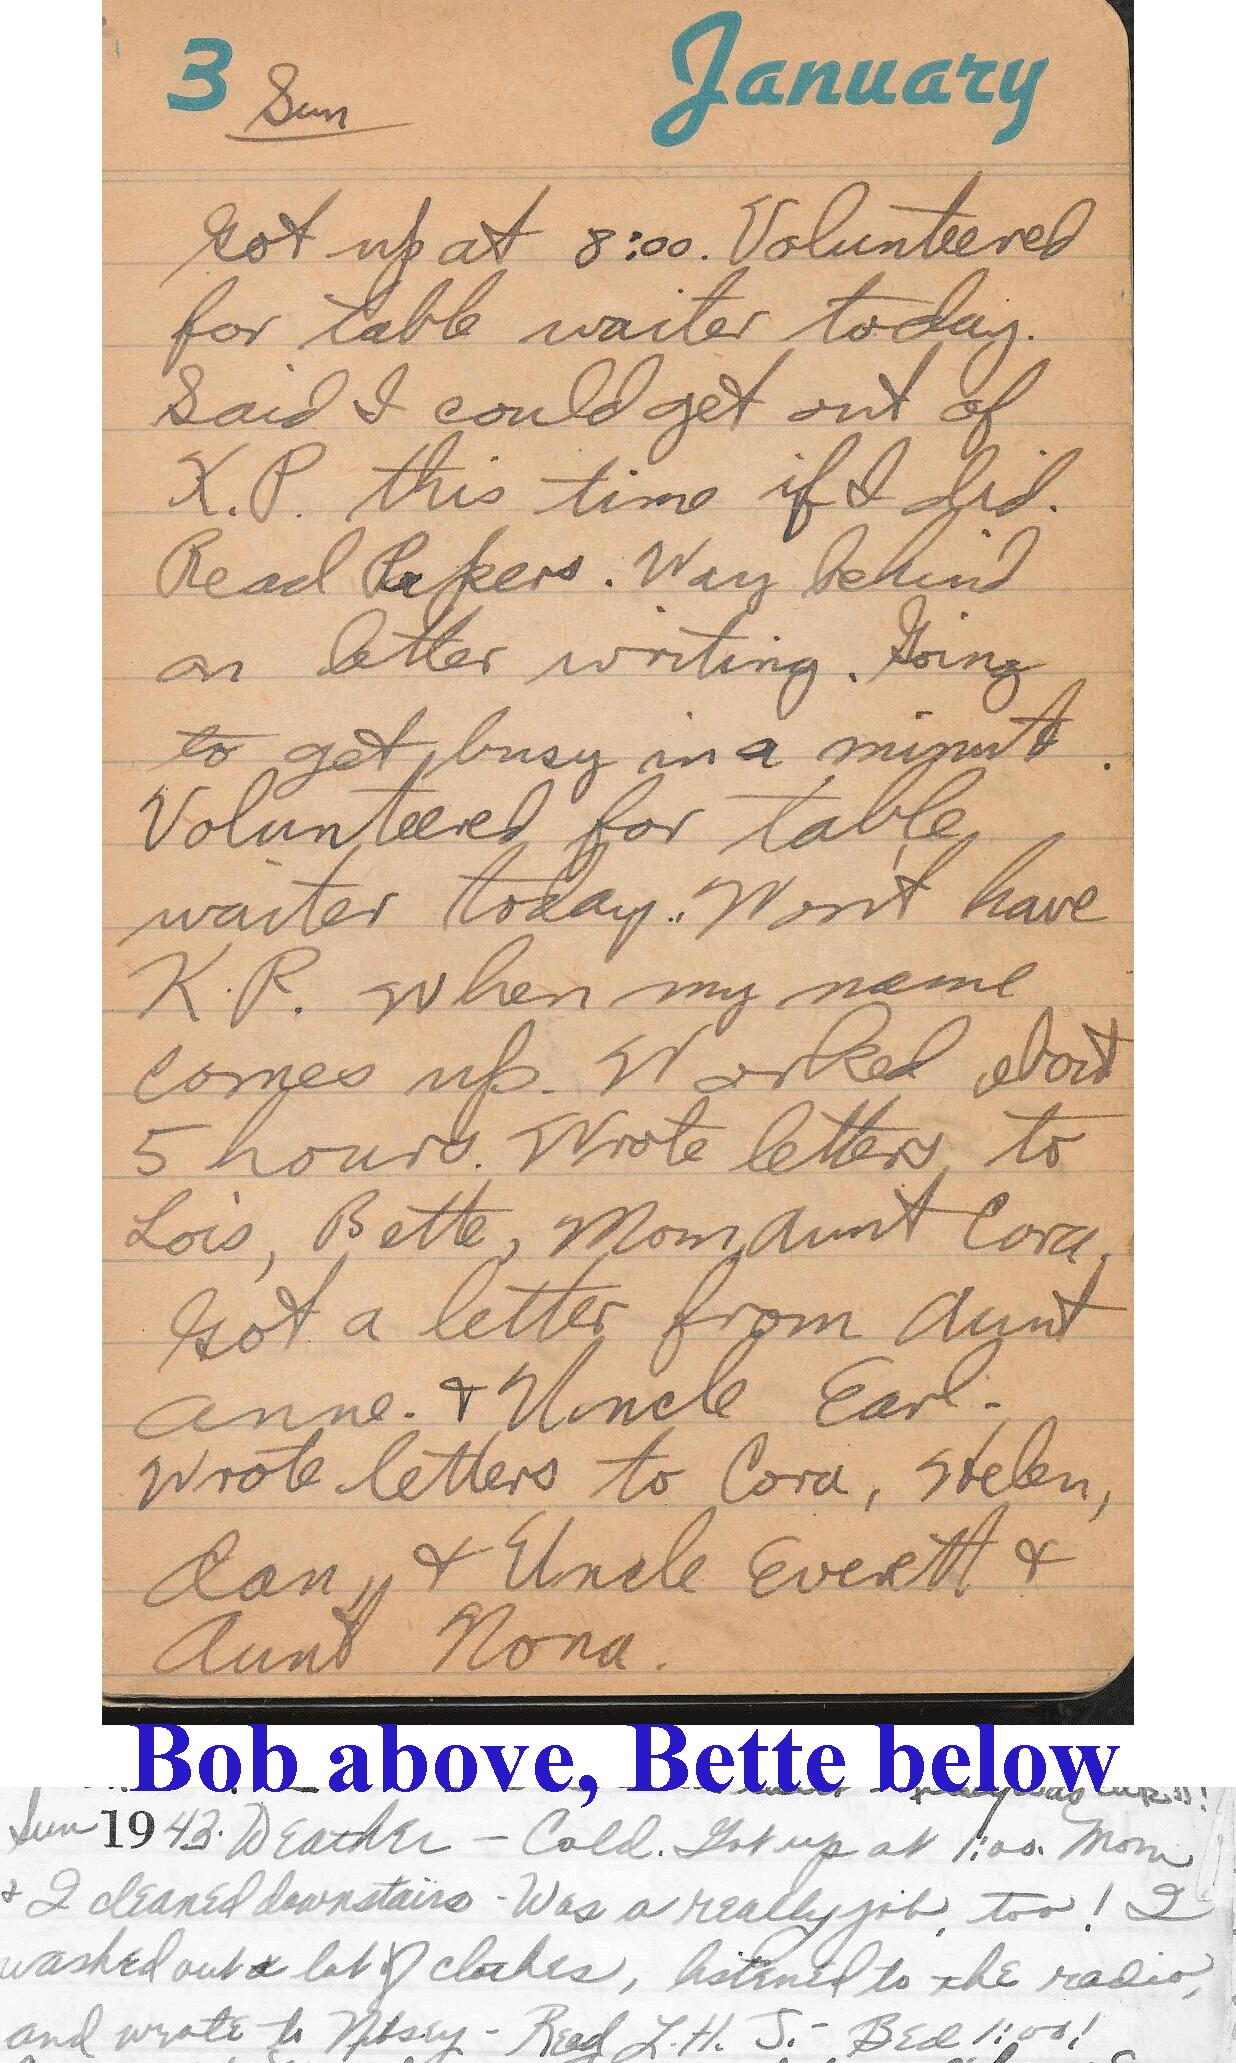 3 Sun January
Got up at 8:00. Volunteered
for table waiter today.
Said I could get out of
K.P. this time if I did.
Read Papers. Way behind
on letter writing. Going
to get busy in a minut.
Volunteered for table
waiter today. Won't have
K.P. when my name
comes up. Worked about
5 hours. Wrote letters to
Lois, Bette, Mom, Aunt Cora.
Got a letter from Aunt
Anne. & Uncle Earl.
Wrote letters to Cora, Helen,
Dan, & Uncle Everett &
Aunt Nona.
Bob above, Bette below
Sun 1943. Weather - Cold. Got up at 1:00. Mom
& I cleaned downstairs - Was a really job, too! I
washed out a lot of clothes, listened to the radio,
and wrote to - Read L.H.J. - Bed 1:00!